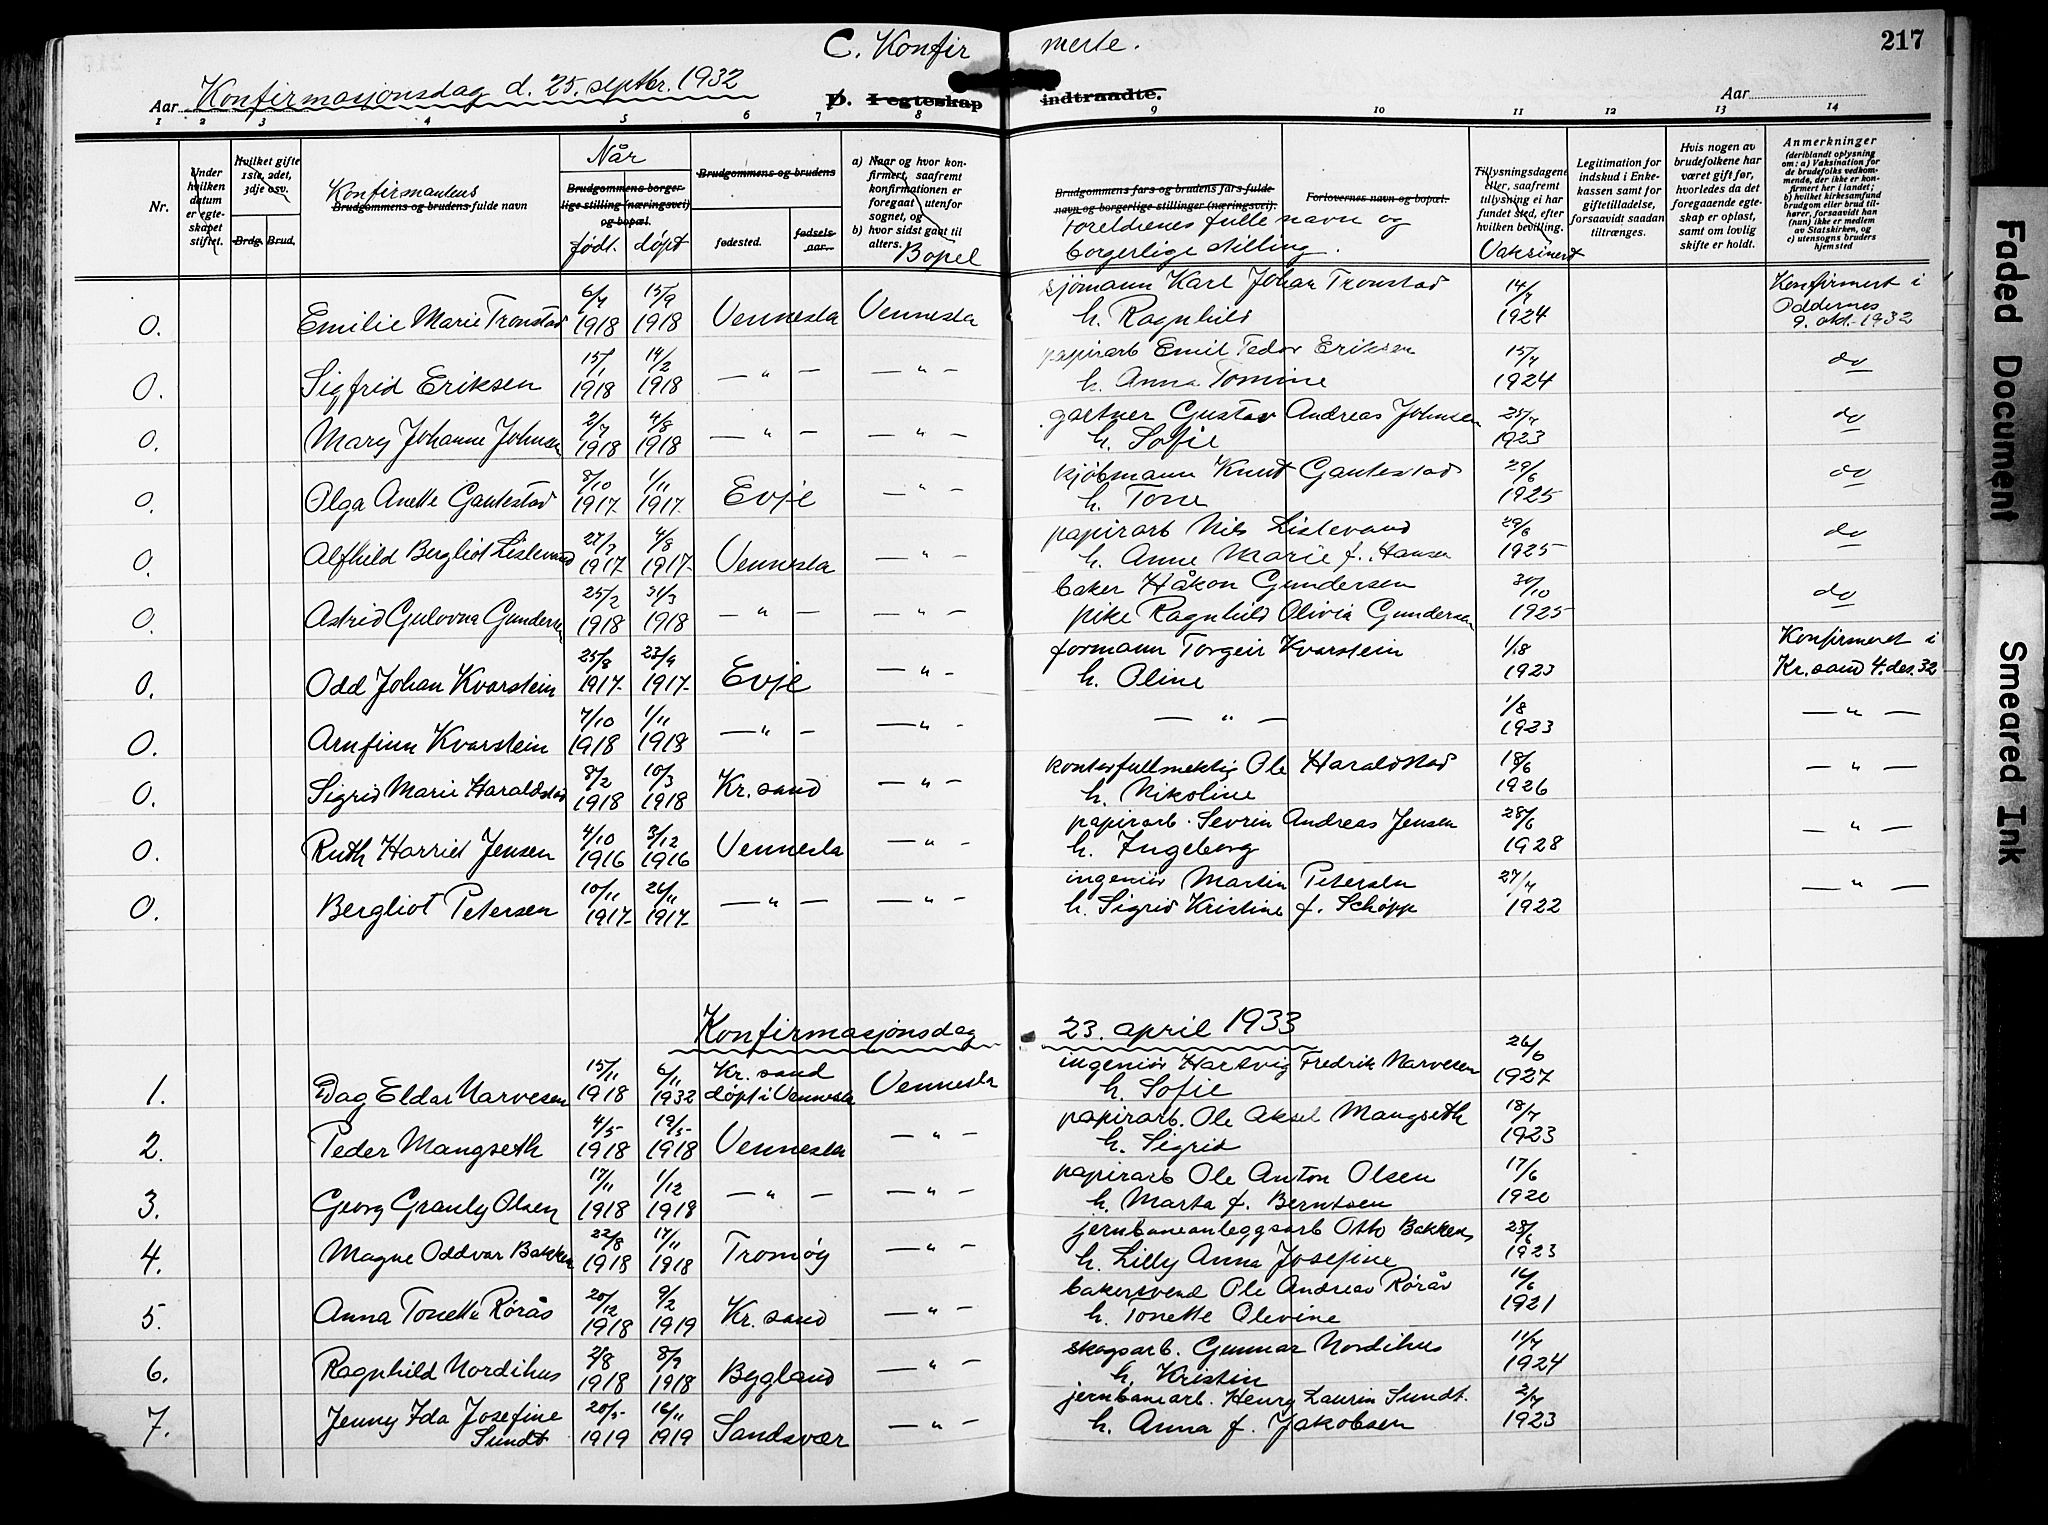 C. Konfir merte. 217
Aar Konfirmasjonsdag d. 25. septbr. 1932 D. I egteskap indtraadte. Aar
1 2 3 4 5 6 7 8 9 10 11 12 13 14
Nr. Under hvilken datum er egteskapet stiftet. Hvilket gifte 1ste, 2det, 3dje osv. Brdg. Brud. Konfirmantens Brudgommens og brudens fulde navn Når Brudgommens borgerlige stilling (næringsvei) og bopæl. født. døpt Brudgommens og brudens fødested. fødselsaar. a) Naar og hvor konfirmert, saafremt konfirmationen er foregaat utenfor sognet, og b) hvor sidst gaat til alters. Bopel
Brudgommens fars og brudens fars fulde navn og borgerlige stillinger (næringsvei). Foreldrenes fulle navn og borgerlige stilling. Forlovernes navn og bopæl. Tillysningsdagene eller, saafremt tillysning ei har fundet sted, efter hvilken bevilling. Vaksinert Legitimation for indskud i Enkekassen samt for giftetilladelse, forsaavidt saadan tiltrænges. Hvis nogen av brudefolkene har været gift før, hvorledes da det foregaaende egteskap er opløst, samt om lovlig skifte er holdt. Anmerkninger (deriblandt oplysning om: a) Vaksination for de brudefolks vedkommende, der ikke er konfirmert her i landet; b) hvilket kirkesamfund brudgom eller brud tilhører, forsaavidt han (hun) ikke er medlem av Statskirken, og c) utensogns bruders hjemsted
0. Emilie Marie Tronstad 6/7 1918 15/9 1918 Vennesla Vennesla sjømann Karl Johan Tronstad h. Ragnhild 14/7 1924 Konfirmert i Oddernes 9. okt. 1932
0. Sigfrid Eriksen 15/1 1918 14/2 1918 — " — — " — papirarb Emil Tedor Eriksen h. Anna Tomine 15/7 1924 do
0. Mary Johanne Johnsen 2/7 1918 4/8 1918 — " — — " — gartner Gustav Andreas Johnsen h. Sofie 25/7 1923 do
0. Olga Anette Gautestad 8/10 1917 1/11 1917 Evje — " — kjøbmann Knut Gautestad h. Tone 29/6 1925 do
0. Alfhild Bergliot Listevand 27/7 1917 4/8 1917 Vennesla — " — papirarb Nils Listevand h. Anne Marie f. Hansen 29/6 1925 do
0. Astrid Gulovna Gundersen 25/2 1918 31/3 1918 — " — — " — baker Håkon Gundersen pike Ragnhild Olivia Gundersen 30/10 1925 do
0. Odd Johan Kvarstein 25/8 1917 23/9 1917 Evje — " — formann Torgeir Kvarstein h. Oline 1/8 1923 Konfirmert i Kr. sand 4. des. 32
0. Arnfinn Kvarstein 7/10 1918 1/11 1918 — " — — " — — " — 1/8 1923 — " —
0. Sigrid Marie Haraldstad 8/2 1918 10/3 1918 Kr. sand — " — kontorfullmektig Ole Haraldstad h. Nikoline 18/6 1926 — " —
0. Ruth Harriet Jensen 4/10 1916 3/12 1916 Vennesla — " — papirarb. Sevrin Andreas Jensen h. Ingeborg 28/6 1928 — " —
0. Bergliot Petersen 10/11 1917 26/11 1917 — " — — " — ingeniør Martin Petersen h. Sigrid Kristine f. Schøpp 27/7 1922 — " —
Konfirmasjonsdag 23. april 1933
1. Dag Eldar Narvesen 15/11 1918 6/11 1932 Kr. sand døpt i Vennesla Vennesla ingeniør Hartvig Fredrik Narvesen h. Sofie 26/6 1927
2. Peder Mangseth 4/5 1918 19/5 1918 Vennesla — " — papirarb. Ole Aksel Mangseth h. Sigrid 18/7 1923
3. Georg Granly Olsen 17/11 1918 1/12 1918 — " — — " — papirarb Ole Anton Olsen h. Marta f. Berntsen 17/6 1920
4. Magne Oddvar Bakken 22/8 1918 17/11 1918 Tromøy — " — jernbaneanleggsarb Otto Bakken h. Lilly Anna Josefine 28/6 1923
5. Anna Tonette Rørås 20/12 1918 9/2 1919 Kr. sand — " — bakersvend Ole Andreas Rørås h. Tonette Olevine 16/6 1921
6. Ragnhild Nordihus 2/8 1918 8/9 1918 Bygland — " — skogsarb. Gunnar Nordihus h. Kristin 11/7 1924
7. Jenny Ida Josefine Sundt 20/5 1919 16/11 1919 Sandsvær — " — jernbanearb. Henry Laurin Sundt. h. Anna f. Jakobsen 2/7 1923
Faded Document
Smeared Ink